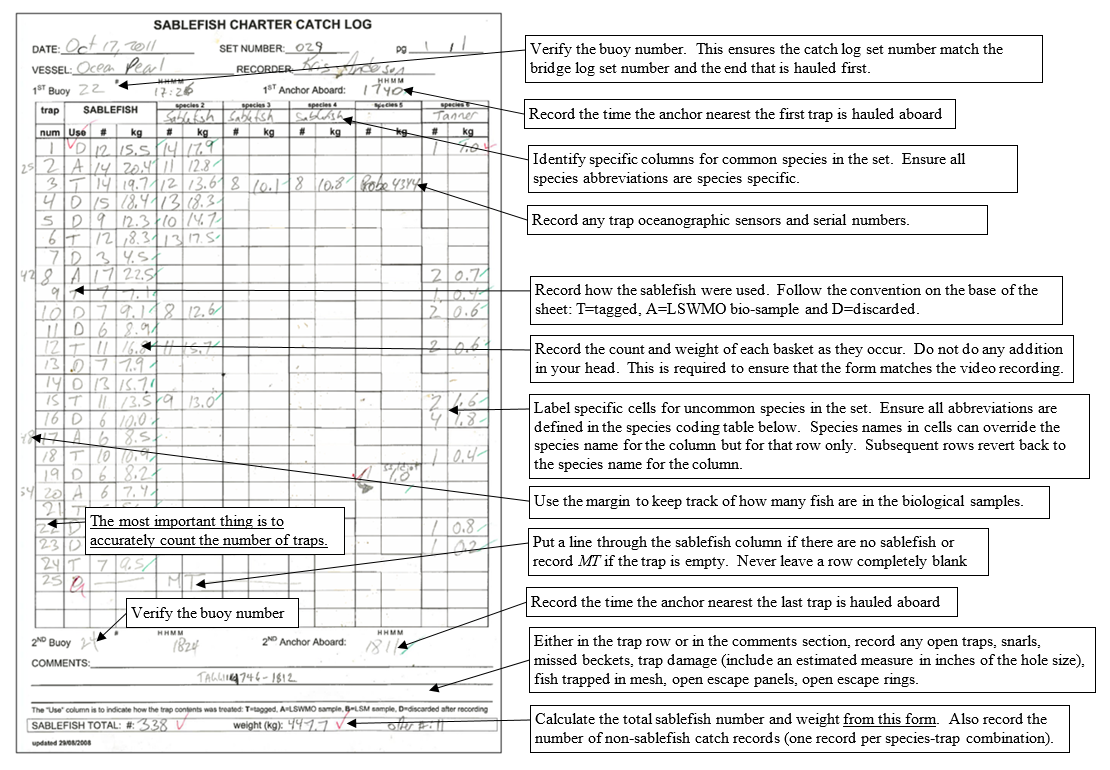 SABLEFISH CHARTER CATCH LOG
DATE: Oct 17, 2011 SET NUMBER: 029 pg 1 / 1
VESSEL: Ocean Pearl RECORDER: Kris Anderson
# HHMM HHMM
1ST Buoy 22 17:26 1ST Anchor Aboard: 1740
trap SABLEFISH species 2 species 3 species 4 species 5 species 6
Sablefish Sablefish Sablefish Tanner
num Use # kg # kg # kg # kg # kg # kg
1 D 12 15.5 14 17.9 1 7.0
25 2 A 14 20.4 11 12.8
3 T 14 19.7 12 13.6 8 10.1 8 10.8 Probe 4344
4 D 15 18.4 13 18.3
5 D 9 12.3 10 14.7
6 T 12 18.3 13 17.5
7 D 3 4.5
42 8 A 17 22.5 2 0.7
9 T 7 7.1 1 0.4
10 D 7 9.1 8 12.6 2 0.6
11 D 6 8.9
12 T 11 16.8 11 15.7 2 0.6
13 D 7 7.9
14 D 13 15.7
15 T 11 13.5 9 13.0 2 1.6
16 D 6 10.0 4 1.8
48 17 A 6 8.5
18 T 10 10.9 1 0.4
19 D 6 8.2 1 1.0
54 20 A 6 7.4
21 T
22 D 1 0.8
23 D 1 0.2
24 T 7 9.5
25 MT
# HHMM HHMM
2ND Buoy 24 1824 2ND Anchor Aboard: 1811
COMMENTS:
TAGLINE 1746-1812
The "Use" column is to indicate how the trap contents was treated: T=tagged, A=LSWMO sample, B=LSM sample, D=discarded after recording
SABLEFISH TOTAL: #: 338 weight (kg): 447.7 other #: 11
updated 29/08/2008
Verify the buoy number. This ensures the catch log set number match the
bridge log set number and the end that is hauled first.
Record the time the anchor nearest the first trap is hauled aboard
Identify specific columns for common species in the set. Ensure all
species abbreviations are species specific.
Record any trap oceanographic sensors and serial numbers.
Record how the sablefish were used. Follow the convention on the base of the
sheet: T=tagged, A=LSWMO bio-sample and D=discarded.
Record the count and weight of each basket as they occur. Do not do any addition
in your head. This is required to ensure that the form matches the video recording.
Label specific cells for uncommon species in the set. Ensure all abbreviations are
defined in the species coding table below. Species names in cells can override the
species name for the column but for that row only. Subsequent rows revert back to
the species name for the column.
Use the margin to keep track of how many fish are in the biological samples.
The most important thing is to
accurately count the number of traps.
Put a line through the sablefish column if there are no sablefish or
record MT if the trap is empty. Never leave a row completely blank
Verify the buoy number
Record the time the anchor nearest the last trap is hauled aboard
Either in the trap row or in the comments section, record any open traps, snarls,
missed beckets, trap damage (include an estimated measure in inches of the hole size),
fish trapped in mesh, open escape panels, open escape rings.
Calculate the total sablefish number and weight from this form. Also record the
number of non-sablefish catch records (one record per species-trap combination).